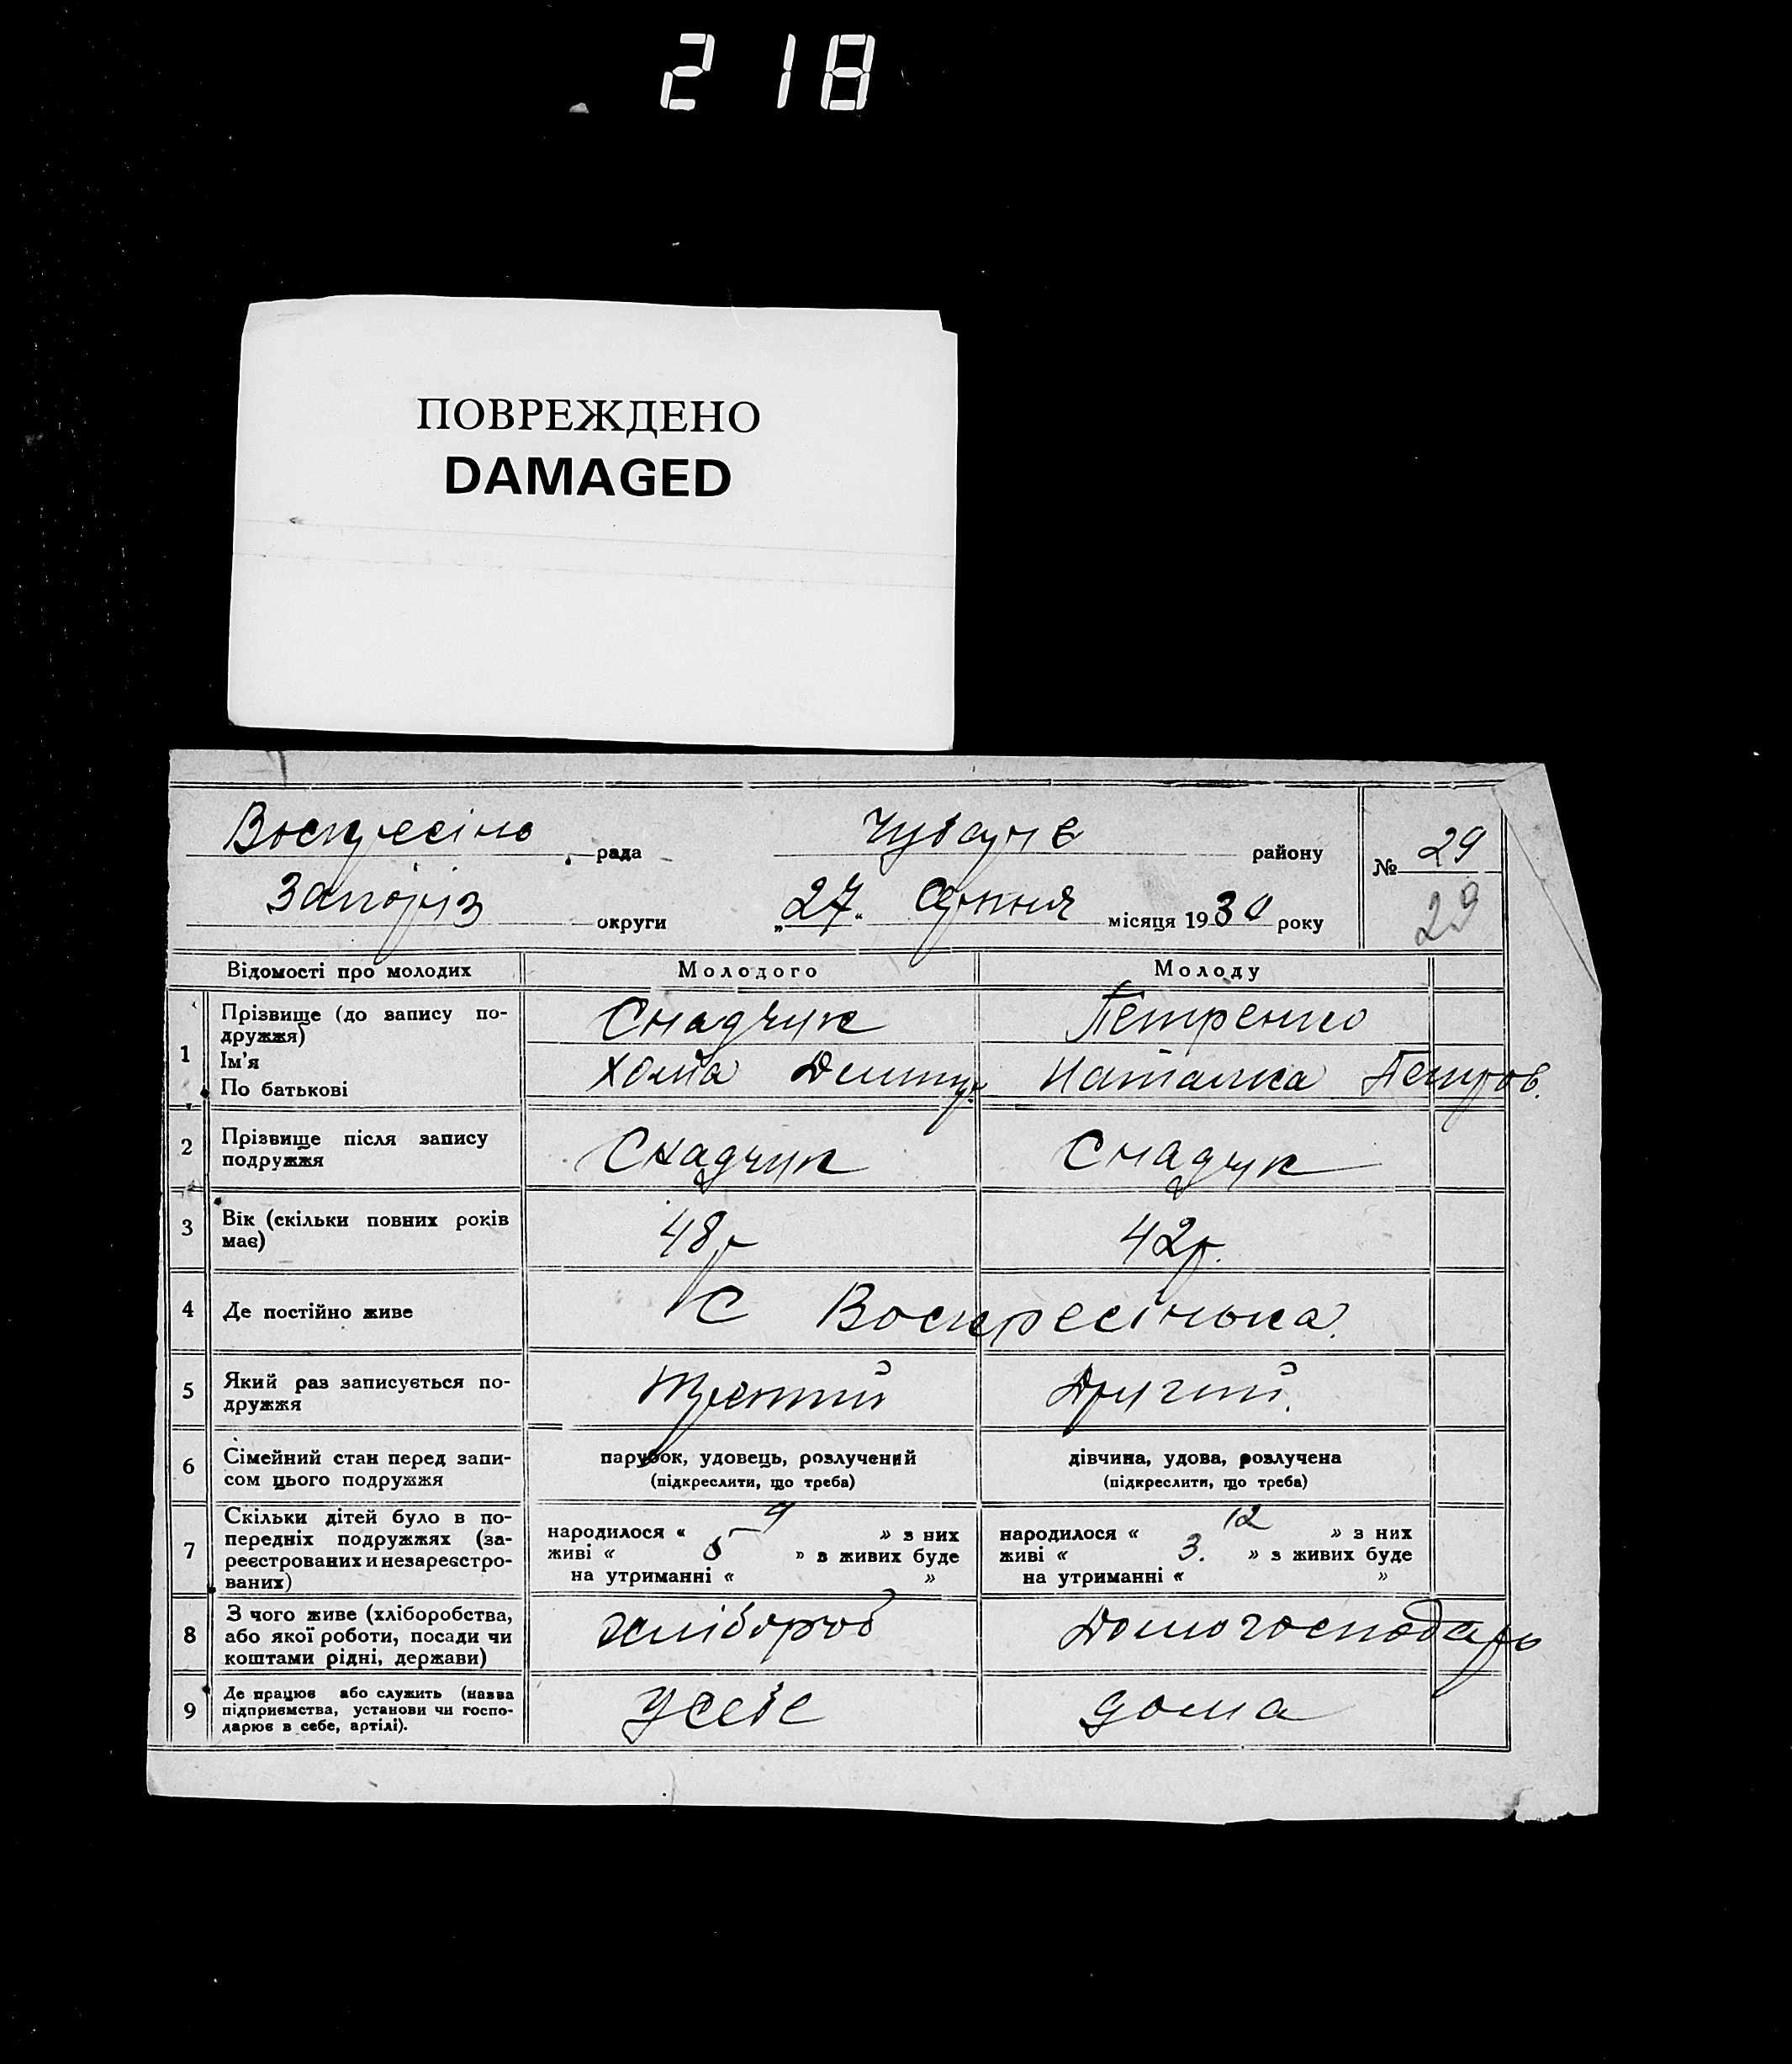 218
ПОВРЕЖДЕНО
DAMAGED
Воскресінь рада Чубарів району № 29
Запоріз округи „27" серпня місяця 1930 року 29
Відомості про молодих Молодого Молоду
1 Прізвище (до запису подружжя) Снадчук Петренко
Ім'я
По батькові Хома Дмитр. Наталка Петров.
2 Прізвище після запису подружжя Снадчук Снадчук
3 Вік (скільки повних років має) 48 р 42 р.
4 Де постійно живе С Воскресінька
5 Який раз записується подружжя Третий Другий.
6 Сімейний стан перед записом цього подружжя парубок, удовець, розлучений дівчина, удова, розлучена
(підкреслити, що треба) (підкреслити, що треба)
7 Скільки дітей було в попередніх подружжях (зареєстрованих и незареєстрованих)
народилося « 9 » з них народилося « 12 » з них
живі « 5 » з живих буде живі « 3. » з живих буде
на утриманні « » на утриманні « »
8 З чого живе (хліборобства, або якої роботи, посади чи коштами рідні, держави) хлібороб Домогосподарь
9 Де працює або служить (назва підприємства, установи чи господарює в себе, артілі). У себе дома